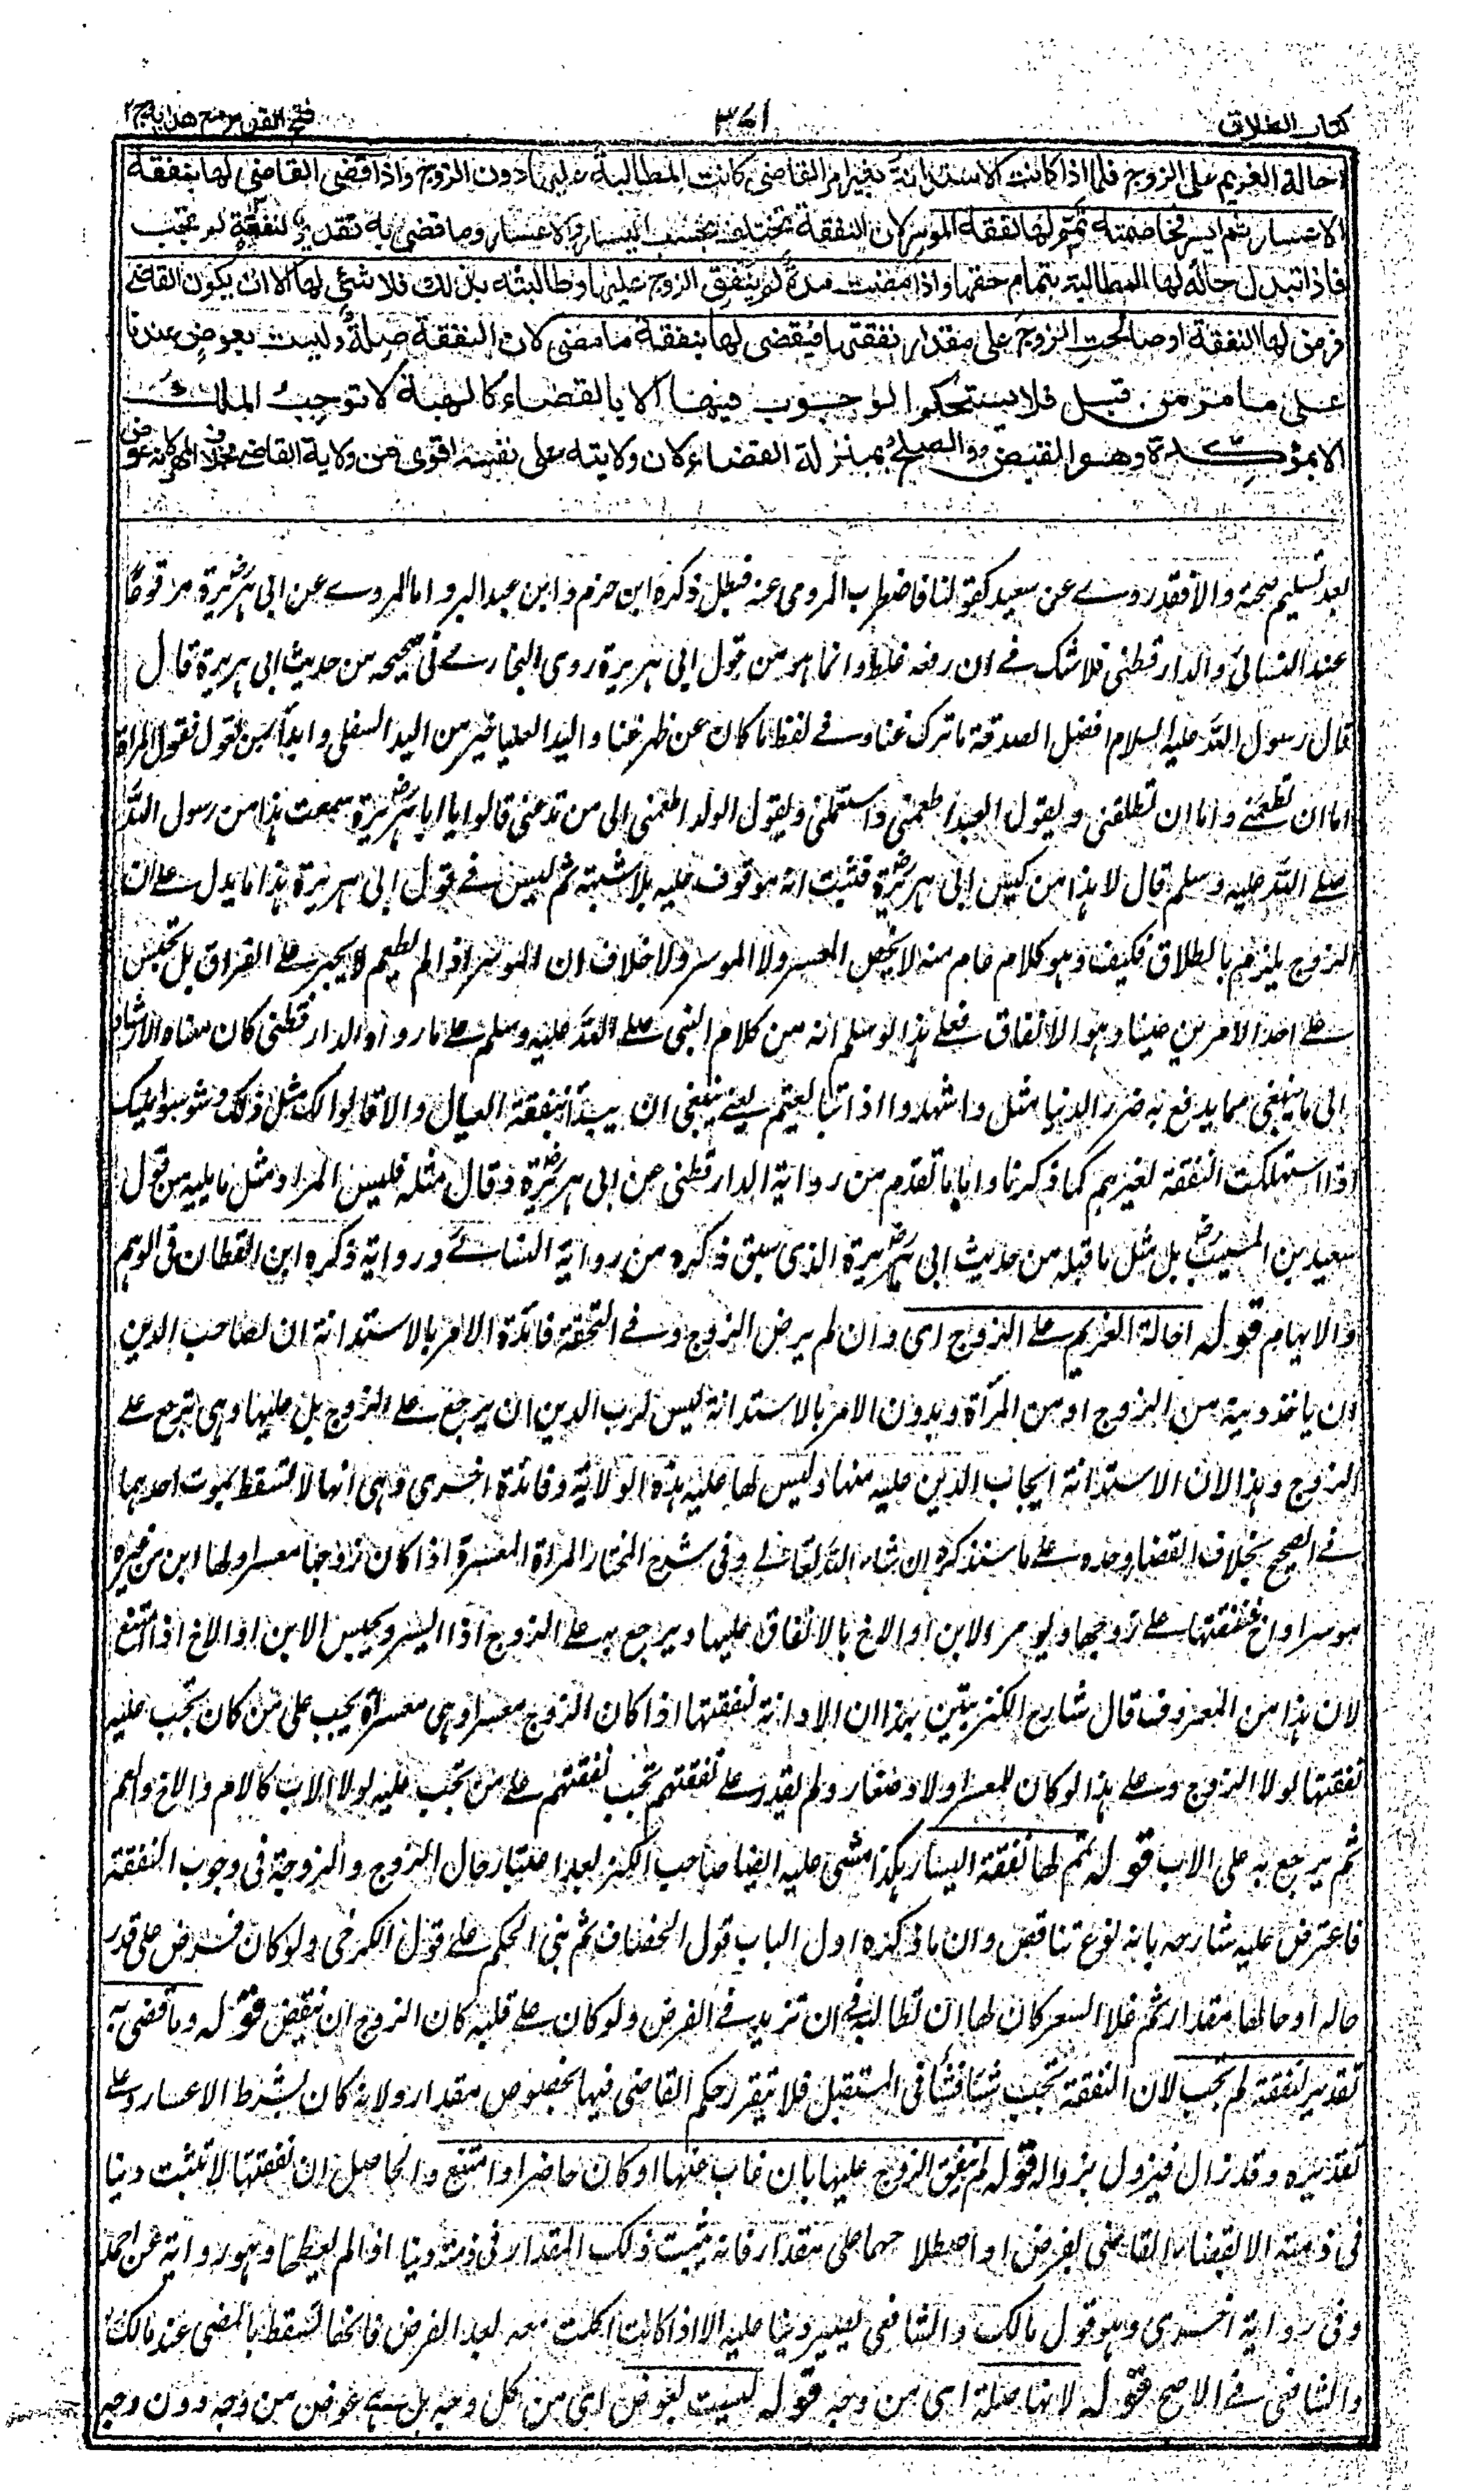 كتاب الطلاق
٣٧١
فتح القدير مع هدايه ج ٢
احالة الغريم على الزوج فاما اذا كانت الاستدانة بغير امر القاضى كانت المطالبة عليها دون الزوج واذا قضى القاضى لها بنفقة
الاعسار ثم ايسر فخاصمته تمم لها نفقة الموسر لان النفقة تختلف بحسب اليسار والاعسار وما قضى به تقدير لنفقة لم تجب
فاذا تبدل حاله لها المطالبة بتمام حقها واذا مضت مدة لم ينفق الزوج عليها وطالبته بذلك فلا شئ لها الا ان يكون القاضى
فرض لها النفقة او صالحت الزوج على مقدار نفقتها فيقضى لها بنفقة ما مضى لان النفقة صلة وليست بعوض عندنا
على ما مر من قبل فلا يستحكم الوجوب فيها الا بالقضاء كالهبة لا توجب الملك
الا بمؤكدة وهو القبض والصلح بمنزلة القضاء لان ولايته على نفسه اقوى من ولاية القاضى بخلاف المهر لانه عوض
بعد تسليم صحته والا فقد روى عن سعيد كقولنا فاضطرب المروى عنه فبطل ذكره ابن حزم وابن عبد البر واما المروى عن ابى هريرة مرفوعًا
عند النسائى والدارقطنى فلا شك فى ان رفعه غلط وانما هو من قول ابى هريرة روى البخارى فى صحيحه من حديث ابى هريرة قال
قال رسول الله عليه السلام افضل الصدقة ما ترك غنا وفى لفظ ما كان عن ظهر غنا واليد العليا خير من اليد السفلى وابدأ بمن تعول تقول المرأة
اما ان تطعمنى واما ان تطلقنى ويقول العبد اطعمنى واستعملنى ويقول الولد اطعمنى الى من تدعنى قالوا يا ابا هريرة سمعت هذا من رسول الله
صلى الله عليه وسلم قال لا هذا من كيس ابى هريرة فثبت انه موقوف عليه بلا شبهة ثم ليس فى قول ابى هريرة هذا ما يدل على ان
الزوج يلزم بالطلاق فكيف وهو كلام عام منه لا يخص المعسر ولا الموسر ولا خلاف ان الموسر اذا لم يطعم لا يجبر على الفراق بل يحبس
على احد الامرين عينا وهو الانفاق فعلى هذا لو سلم انه من كلام النبى صلى الله عليه وسلم على ما رواه الدارقطنى كان معناه الارشاد
الى ما ينبغى مما يدفع به ضرر الدنيا مثل واشهدوا اذا تبايعتم يعنى ينبغى ان يبدأ بنفقة العيال والا قالوا لك مثل ذلك وشوشوا عليك
اذا استهلكت النفقة لغيرهم كما ذكرنا واما ما تقدم من رواية الدارقطنى عن ابى هريرة وقال مثله فليس المراد مثل ما يليه من قول
سعيد بن المسيب بل مثل ما قبله من حديث ابى هريرة الذى سبق ذكره من رواية النسائى ورواية ذكره ابن القطان فى الوهم
والايهام قوله احالة الغريم على الزوج اى وان لم يرض الزوج وفى التحفة فائدة الامر بالاستدانة ان لصاحب الدين
ان ياخذ دينه من الزوج او من المرأة وبدون الامر بالاستدانة ليس لرب الدين ان يرجع على الزوج بل عليها وهى ترجع على
الزوج وهذا لان الاستدانة ايجاب الدين عليه منها وليس لها عليه هذه الولاية وفائدة اخرى وهى انها لا تسقط بموت احدهما
فى الصحيح بخلاف القضاء وحده على ما سنذكره ان شاء الله تعالى وفى شرح المختار المرأة المعسرة اذا كان زوجها معسرا ولها ابن من غيره
موسر او اخ فنفقتها على زوجها ويومر الابن او الاخ بالانفاق عليها ويرجع به على الزوج اذا ايسر ويحبس الابن او الاخ اذا امتنع
لان هذا من المعروف قال شارح الكنز بتين بهذا ان الادانة لنفقتها اذا كان الزوج معسرا وهى معسرة يجب على من كان تجب عليه
نفقتها لولا الزوج وعلى هذا لو كان للمعسر اولاد صغار ولم يقدر على نفقتهم تجب نفقتهم على من تجب عليه لولا الاب كالام والاخ والعم
ثم يرجع به على الاب قوله تمم لها نفقة اليسار هكذا مشى عليه ايضا صاحب الكنز بعد اعتبار حال الزوج والزوجة فى وجوب النفقة
فاعترض عليه شارحه بانه نوع تناقض وان ما ذكره اول الباب قول الخصاف ثم بنى الحكم على قول الكرخى ولو كان فرض على قدر
حاله او حالهما مقدار ثم غلا السعر كان لها ان تطالبه فى ان تزيد فى الفرض ولو كان على قلبه كان الزوج ان ينقص قوله وما قضى به
تقدير لنفقة لم تجب لان النفقة تجب شئا فشئا فى المستقبل فلا يتقرر حكم القاضى فيها بخصوص مقدار ولانه كان بشرط الاعسار وعلى
تقديره وقد زال فيزول بزواله قوله لم ينفق الزوج عليها بان غاب عنها او كان حاضرا وامتنع والحاصل ان نفقتها لا تثبت دينا
فى ذمته الا بقضاء القاضى بفرض او اصطلاحهما على مقدار فانه يثبت ذلك المقدار فى ذمته دينا اذا لم يعطها وهو رواية عن احمد
وفى رواية اخرى وهو قول مالك والشافعى يصير دينا عليه الا اذا كانت اكلت معه بعد الفرض فانها تسقط بالمضى عند مالك
والشافعى فى الاصح قوله لانها صلة اى من وجه قوله ليست بعوض اى من كل وجه بل هى عوض من وجه دون وجه